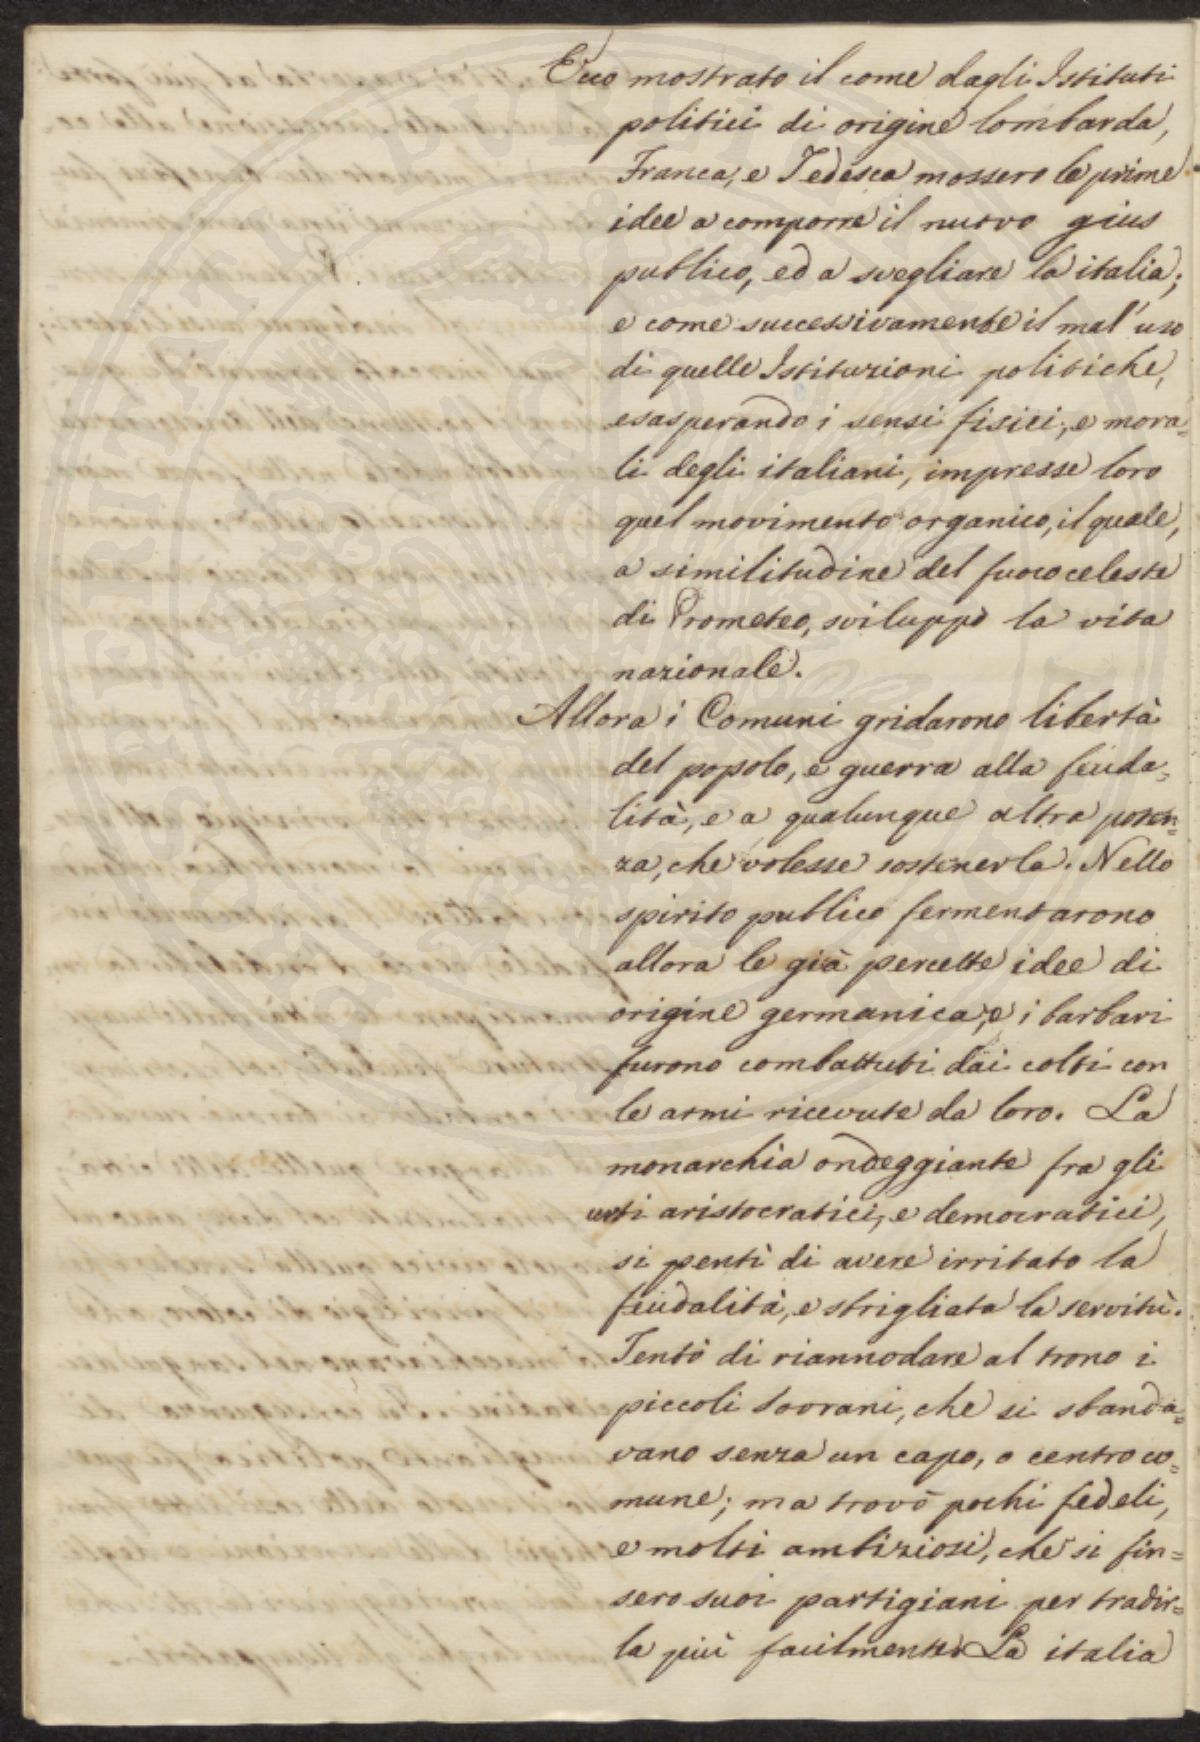 Ecco mostrato il come dagli Istituti
politici di origine lombarda,
Franca, e Tedesca mossero le prime
idee a comporre il nuovo gius
publico, ed a svegliare la italia;
e come successivamente il mal'uso
di quelle Istituzioni politiche,
esasperando i sensi fisici, e mora=
li degli italiani, impresse loro
quel movimento organico, il quale,
a similitudine del fuoco celeste
di Prometeo, sviluppò la vita
nazionale.
Allora i Comuni gridarono libertà
del popolo, e guerra alla feuda=
lità, e a qualunque altra poten=
za, che volesse sostenerla. Nello
spirito publico fermentarono
allora le già percette idee di
origine germanica, e i barbari
furono combattuti dai colti con
le armi ricevute da loro. La
monarchia ondeggiante fra gli
urti aristocratici, e democratici,
si pentì di avere irritato la
feudalità, e strigliata la servitù.
Tentò di riannodare al trono i
piccoli sovrani, che si sbanda=
vano senza un capo, o centro co=
mune; ma trovò pochi fedeli,
e molti ambiziosi, che si fin=
sero suoi partigiani per tradir=
la più facilmente. La italia